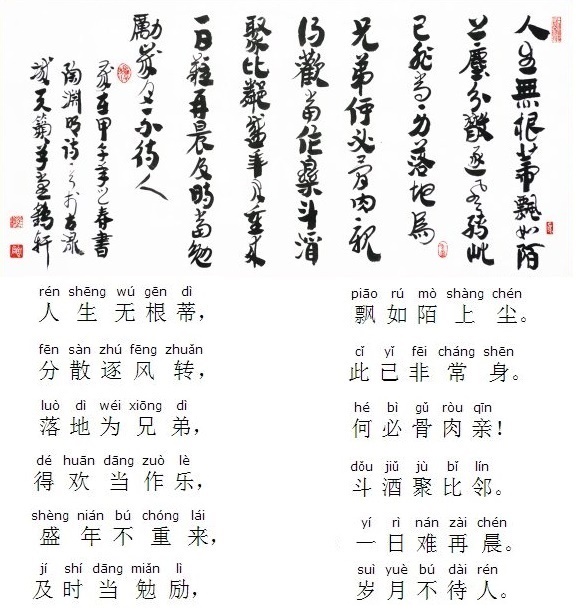 人生無根蒂飄如陌
上塵分散逐風轉此
已非常身落地爲
兄弟何必骨肉親
得歡當作樂斗酒
聚比鄰盛年不重來
一日難再晨及時當勉
勵歲月不待人
歲在甲午年之春書
陶淵明詩一首於古
天籟草堂鶴軒
rén shēng wú gēn dì piāo rú mò shàng chén
人生无根蒂， 飘如陌上尘。
fēn sàn zhú fēng zhuǎn cǐ yǐ fēi cháng shēn
分散逐风转， 此已非常身。
luò dì wéi xiōng dì hé bì gǔ ròu qīn
落地为兄弟， 何必骨肉亲！
dé huān dāng zuò lè dǒu jiǔ jù bǐ lín
得欢当作乐， 斗酒聚比邻。
shèng nián bú chóng lái yí rì nán zài chén
盛年不重来， 一日难再晨。
jí shí dāng miǎn lì suì yuè bú dài rén
及时当勉励， 岁月不待人。